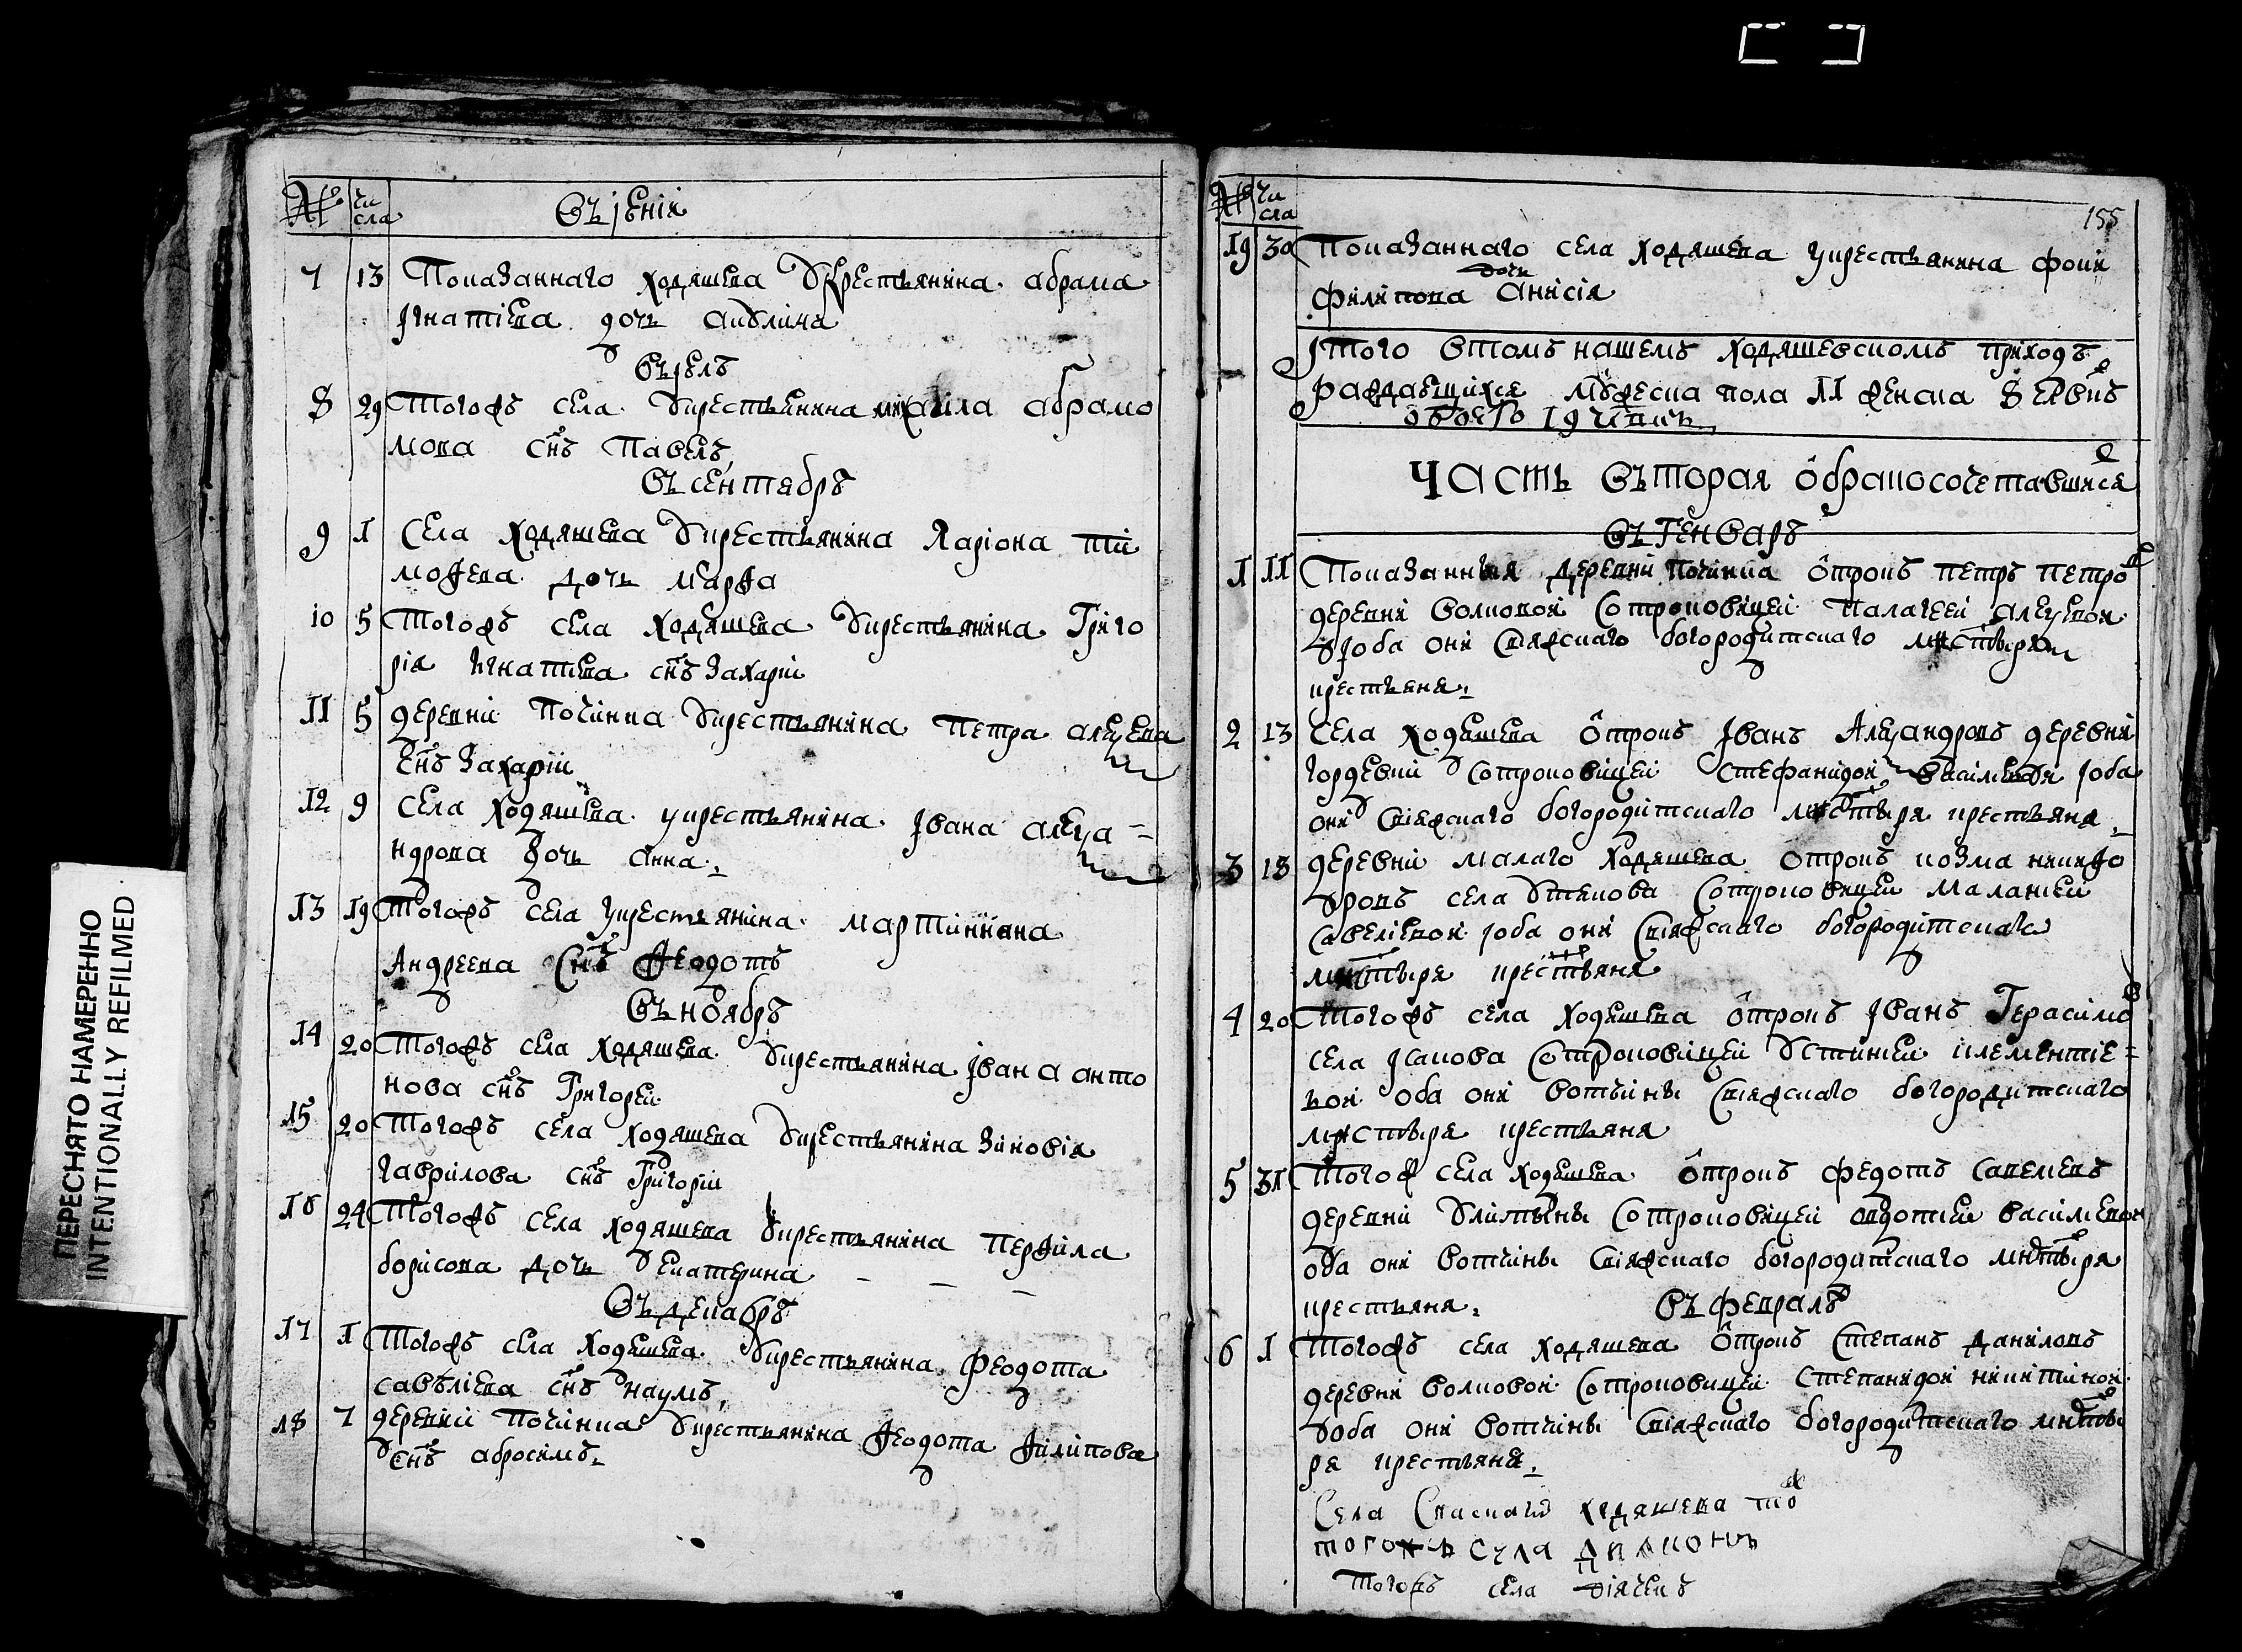 № Чи
сла
Въ іюніи
7 13 Показаннаго Ходяшева у крестьянина абрама
Игнатіева дочь акулина
Въ июлѣ
8 29 Тогожъ села у крестьянина михаила абрамо
мова снъ Павелъ
Въ сентябрѣ
9 1 Села Ходяшева у крестьянина Ларіона ти
моѳева дочь Марѳа
10 5 Тогожъ села Ходяшева у крестьянина Григо
рія Игнатьева снъ Захарий
11 5 деревни Починка у крестьянина Петра алеѯеева
снъ Захарий
12 9 Села Ходяшева у крестьянина Івана алеѯа=
ндрова дочь анна
13 19 Тогожъ села у крестьянина мартиніана
Андреева Снъ Ѳеодотъ
Въ ноябрѣ
14 20 Тогожъ села Ходяшева у крестьянина Івана анто
нова снъ Григорей
15 20 Тогожъ села Ходяшева у крестьянина Зиновія
гаврилова снъ Григорій
16 24 Тогожъ села ходяшева у крестьянина Перѳила
борисова дочь Екатерина
Въ декабрѣ
17 1 Тогожъ села Ходяшева у крестьянина Феодота
савѣліева снъ наумъ
18 7 деревни Починка у крестьянина Ѳеодота Ѳилипова
снъ абросимъ
ПЕРЕСНЯТО НАМЕРЕННО
INTENTIONALLY REFILMED
№ Чи
сла
155
19 30 Показаннаго села Ходяшева у крестьянина фоки
филипова дочь Анисія
Итого втомъ нашемъ ходяшевскомъ приходѣ
раждающихся мужеска пола 11 женска 8
обоего 19
Часть Въторая о бракосочетавшихся
Въ Генварѣ
1 11 Показанныя деревни Починка отрокъ петръ петровъ
деревни волковой Сотроковицей Палагеей алеѯеевой
оба они Свіяжскаго богородитскаго мнстыря
крестьяня
2 13 Села Ходяшева отрокъ Іванъ Алеѯандровъ деревни
гордевки сотроковицей Стефанидой василиевой оба
они Свіяжскаго богородитскаго мнстыря крестьяня
3 18 деревни малаго Ходяшева отрокъ козма никиѳо
ровъ села Утекова Сотроковицей Маланьей
Савеліевой оба они Свіяжскаго богородитскаго
мнстыря крестьяня
4 20 Тогожъ села Ходяшева отрокъ Іванъ Герасимовъ
села Исакова Сотроковицей Устиньей клементіе=
вой оба они вотчины Свіяжскаго богородитскаго
мнстыря крестьяня
5 31 Тогож села Ходяшева отрокъ федотъ Савелиевъ
деревни Сотроковицей авдотьей василиевой
оба они вотчины Свіяжскаго богородитскаго мнстыря
крестьяня
Въ февралѣ
6 1 Тогожъ села Ходяшева отрокъ Степанъ Даниловъ
деревни волковой Сотроковицей Степанидой никитиной
оба они вотчины Свіяжскаго богородитскаго мнсты
ря крестьяня
Села Спаскаго Ходяшева то
тогожъ села дьаконъ
Тогожъ села діячекъ